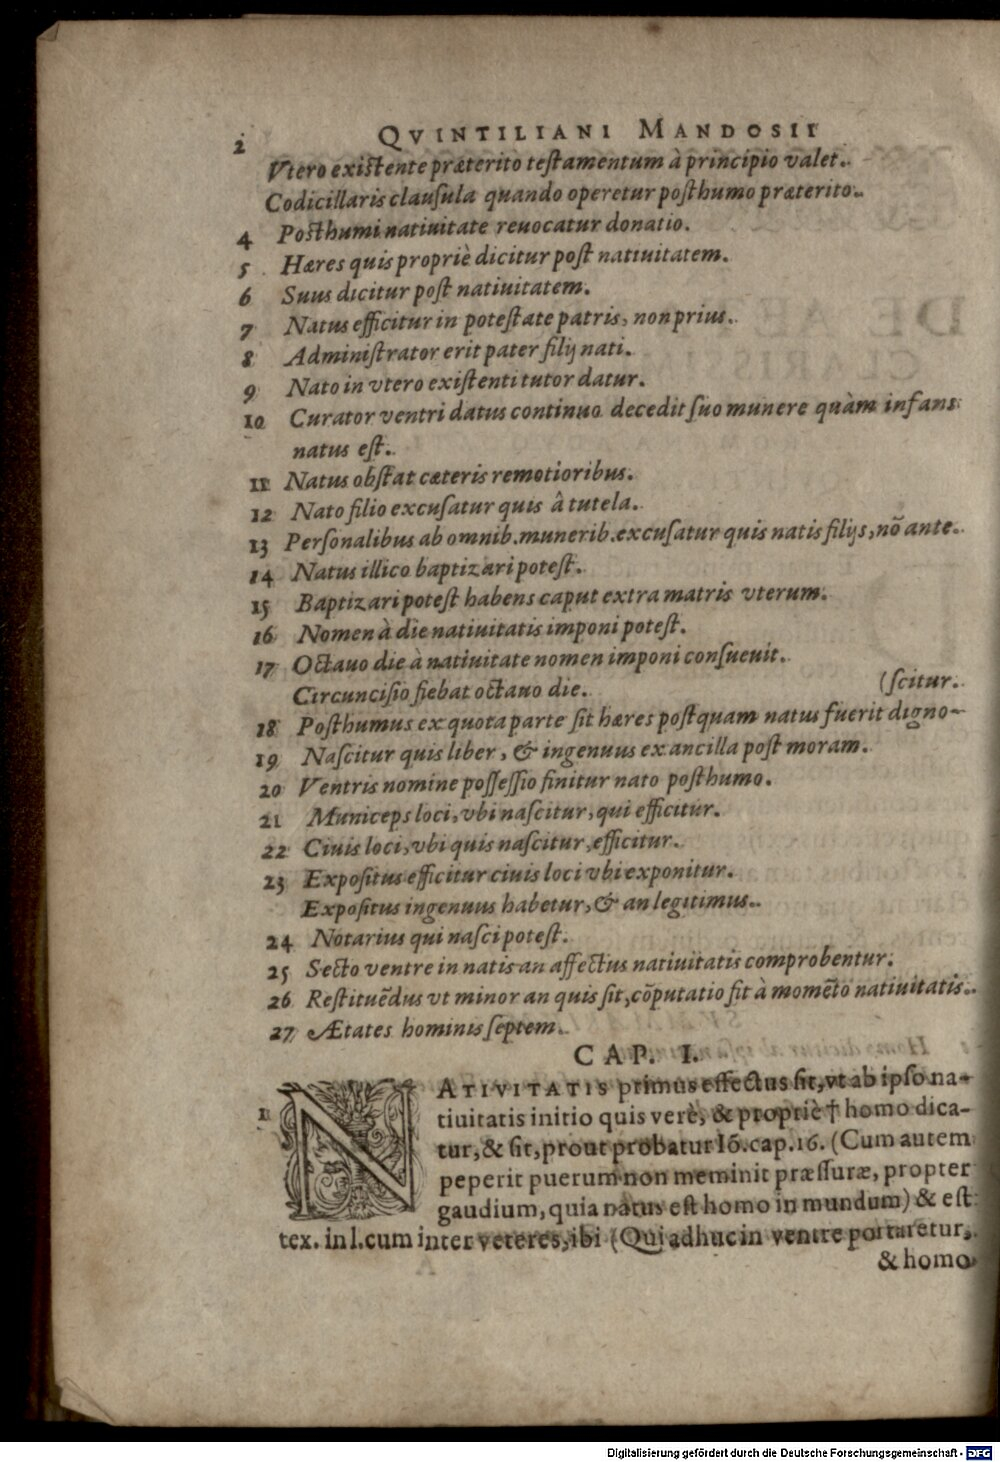 2 QVINTILIANI MANDOSII
Vtero existente præterito testamentum à principio valet.
Codicillaris clausula quando operetur posthumo præterito.
4 Posthumi natiuitate reuocatur donatio.
5 Hæres quis propriè dicitur post natiuitatem.
6 Suus dicitur post natiuitatem.
7 Natus efficitur in potestate patris, non prius.
8 Administrator erit pater filij nati.
9 Nato in vtero existenti tutor datur.
10 Curator ventri datus continuo decedit suo munere quàm infans
natus est.
11 Natus obstat cæteris remotioribus.
12 Nato filio excusatur quis â tutela.
13 Personalibus ab omnib. munerib. excusatur quis natis filijs, nõ ante.
14 Natus illico baptizari potest.
15 Baptizari potest habens caput extra matris vterum.
16 Nomen à die natiuitatis imponi potest.
17 Octauo die à natiuitate nomen imponi consueuit.
Circuncisio fiebat octauo die. (scitur.
18 Posthumus ex quota parte sit hæres postquam natus fuerit digno-
19 Nascitur quis liber, & ingenuus ex ancilla post moram.
20 Ventris nomine possessio finitur nato posthumo.
21 Municeps loci, vbi nascitur, qui efficitur.
22 Ciuis loci, vbi quis nascitur, efficitur.
23 Expositus efficitur ciuis loci vbi exponitur.
Expositus ingenuus habetur, & an legitimus.
24 Notarius qui nasci potest.
25 Secto ventre in natis an affectus natiuitatis comprobentur.
26 Restituẽdus vt minor an quis sit, cõputatio fit à momẽto natiuitatis.
27 Ætates hominis septem.
CAP. I.
NATIVITATIS primus effectus sit, vt ab ipso na-
1 tiuitatis initio quis verè, & propriè † homo dica-
tur, & sit, prout probatur Iõ. cap. 16. (Cum autem
peperit puerum non meminit præssuræ, propter
gaudium, quia natus est homo in mundum) & est
tex. in l. cum inter veteres, ibi (Qui adhuc in ventre portaretur,
& homo
Digitalisierung gefördert durch die Deutsche Forschungsgemeinschaft - DFG